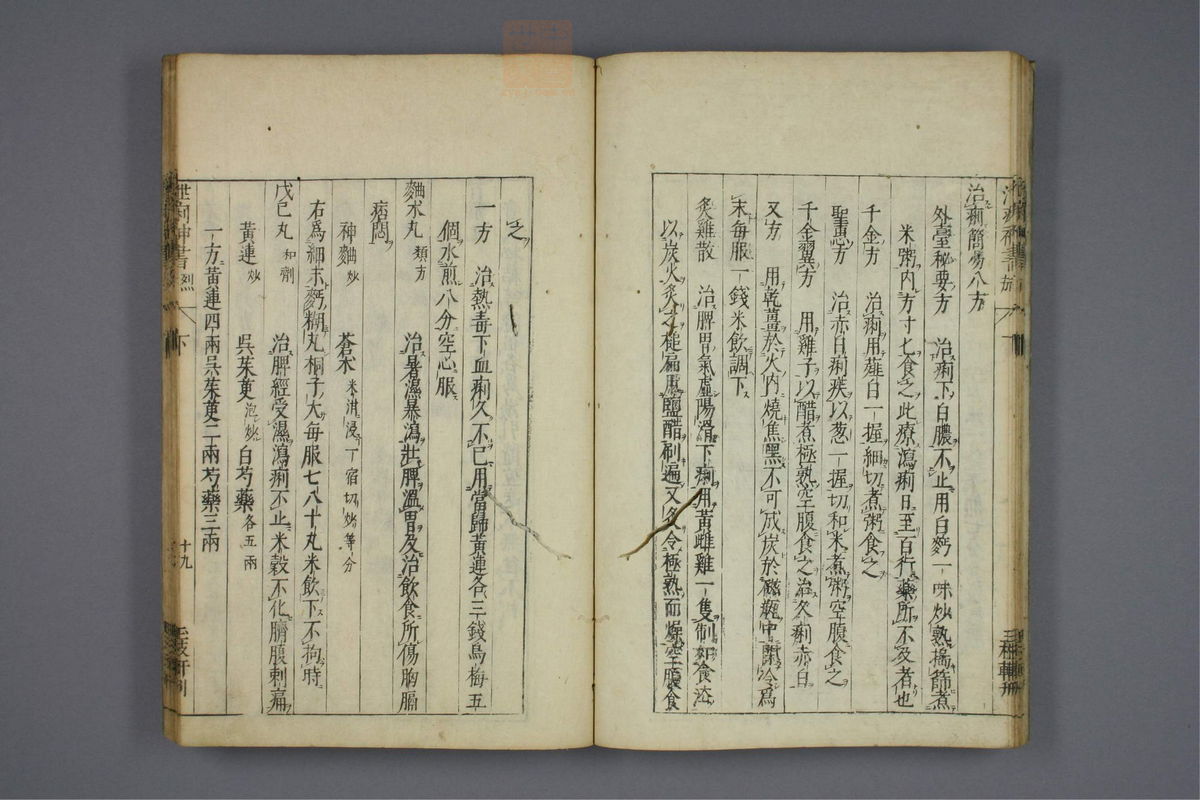 治痢簡易八方
外臺秘要方 治痢下白膿不止用白麪一味炒熟搗篩煮
米粥内方寸匕食之此療瀉痢日至百行藥所不及者也
千金方 治痢用薤白一握細切煮粥食之
聖惠方 治赤白痢疾以葱一握切和米煮粥空腹食之
千金翼方 用雞子以醋煮極熟空腹食之治久痢赤白
又方 用乾薑於火内燒焦黑不可成炭於磁瓶中閉冷爲
末每服一錢米飲調下
炙雞散 治脾胃氣虛陽滑下痢用黃雌雞一隻制如食法
以炭火炙之槌扁用鹽醋刷遍又炙令極熟而燥空腹食
之
一方 治熱毒下血痢久不已用當歸黃連各三錢烏梅五
個水煎八分空心服
麯朮丸 類方 治暑濕暴瀉壯脾溫胃及治飲食所傷胸膈
痞悶
神麯 炒 蒼朮 米泔浸一宿切炒等分
右爲細末麪糊丸桐子大每服七八十丸米飲下不拘時
戊巳丸 和劑 治脾經受濕瀉痢不止米穀不化臍腹刺痛
黃連 炒 呉茱萸 泡炒 白芍藥 各五兩
一方黃連四兩呉茱萸二兩芍藥三兩
十九